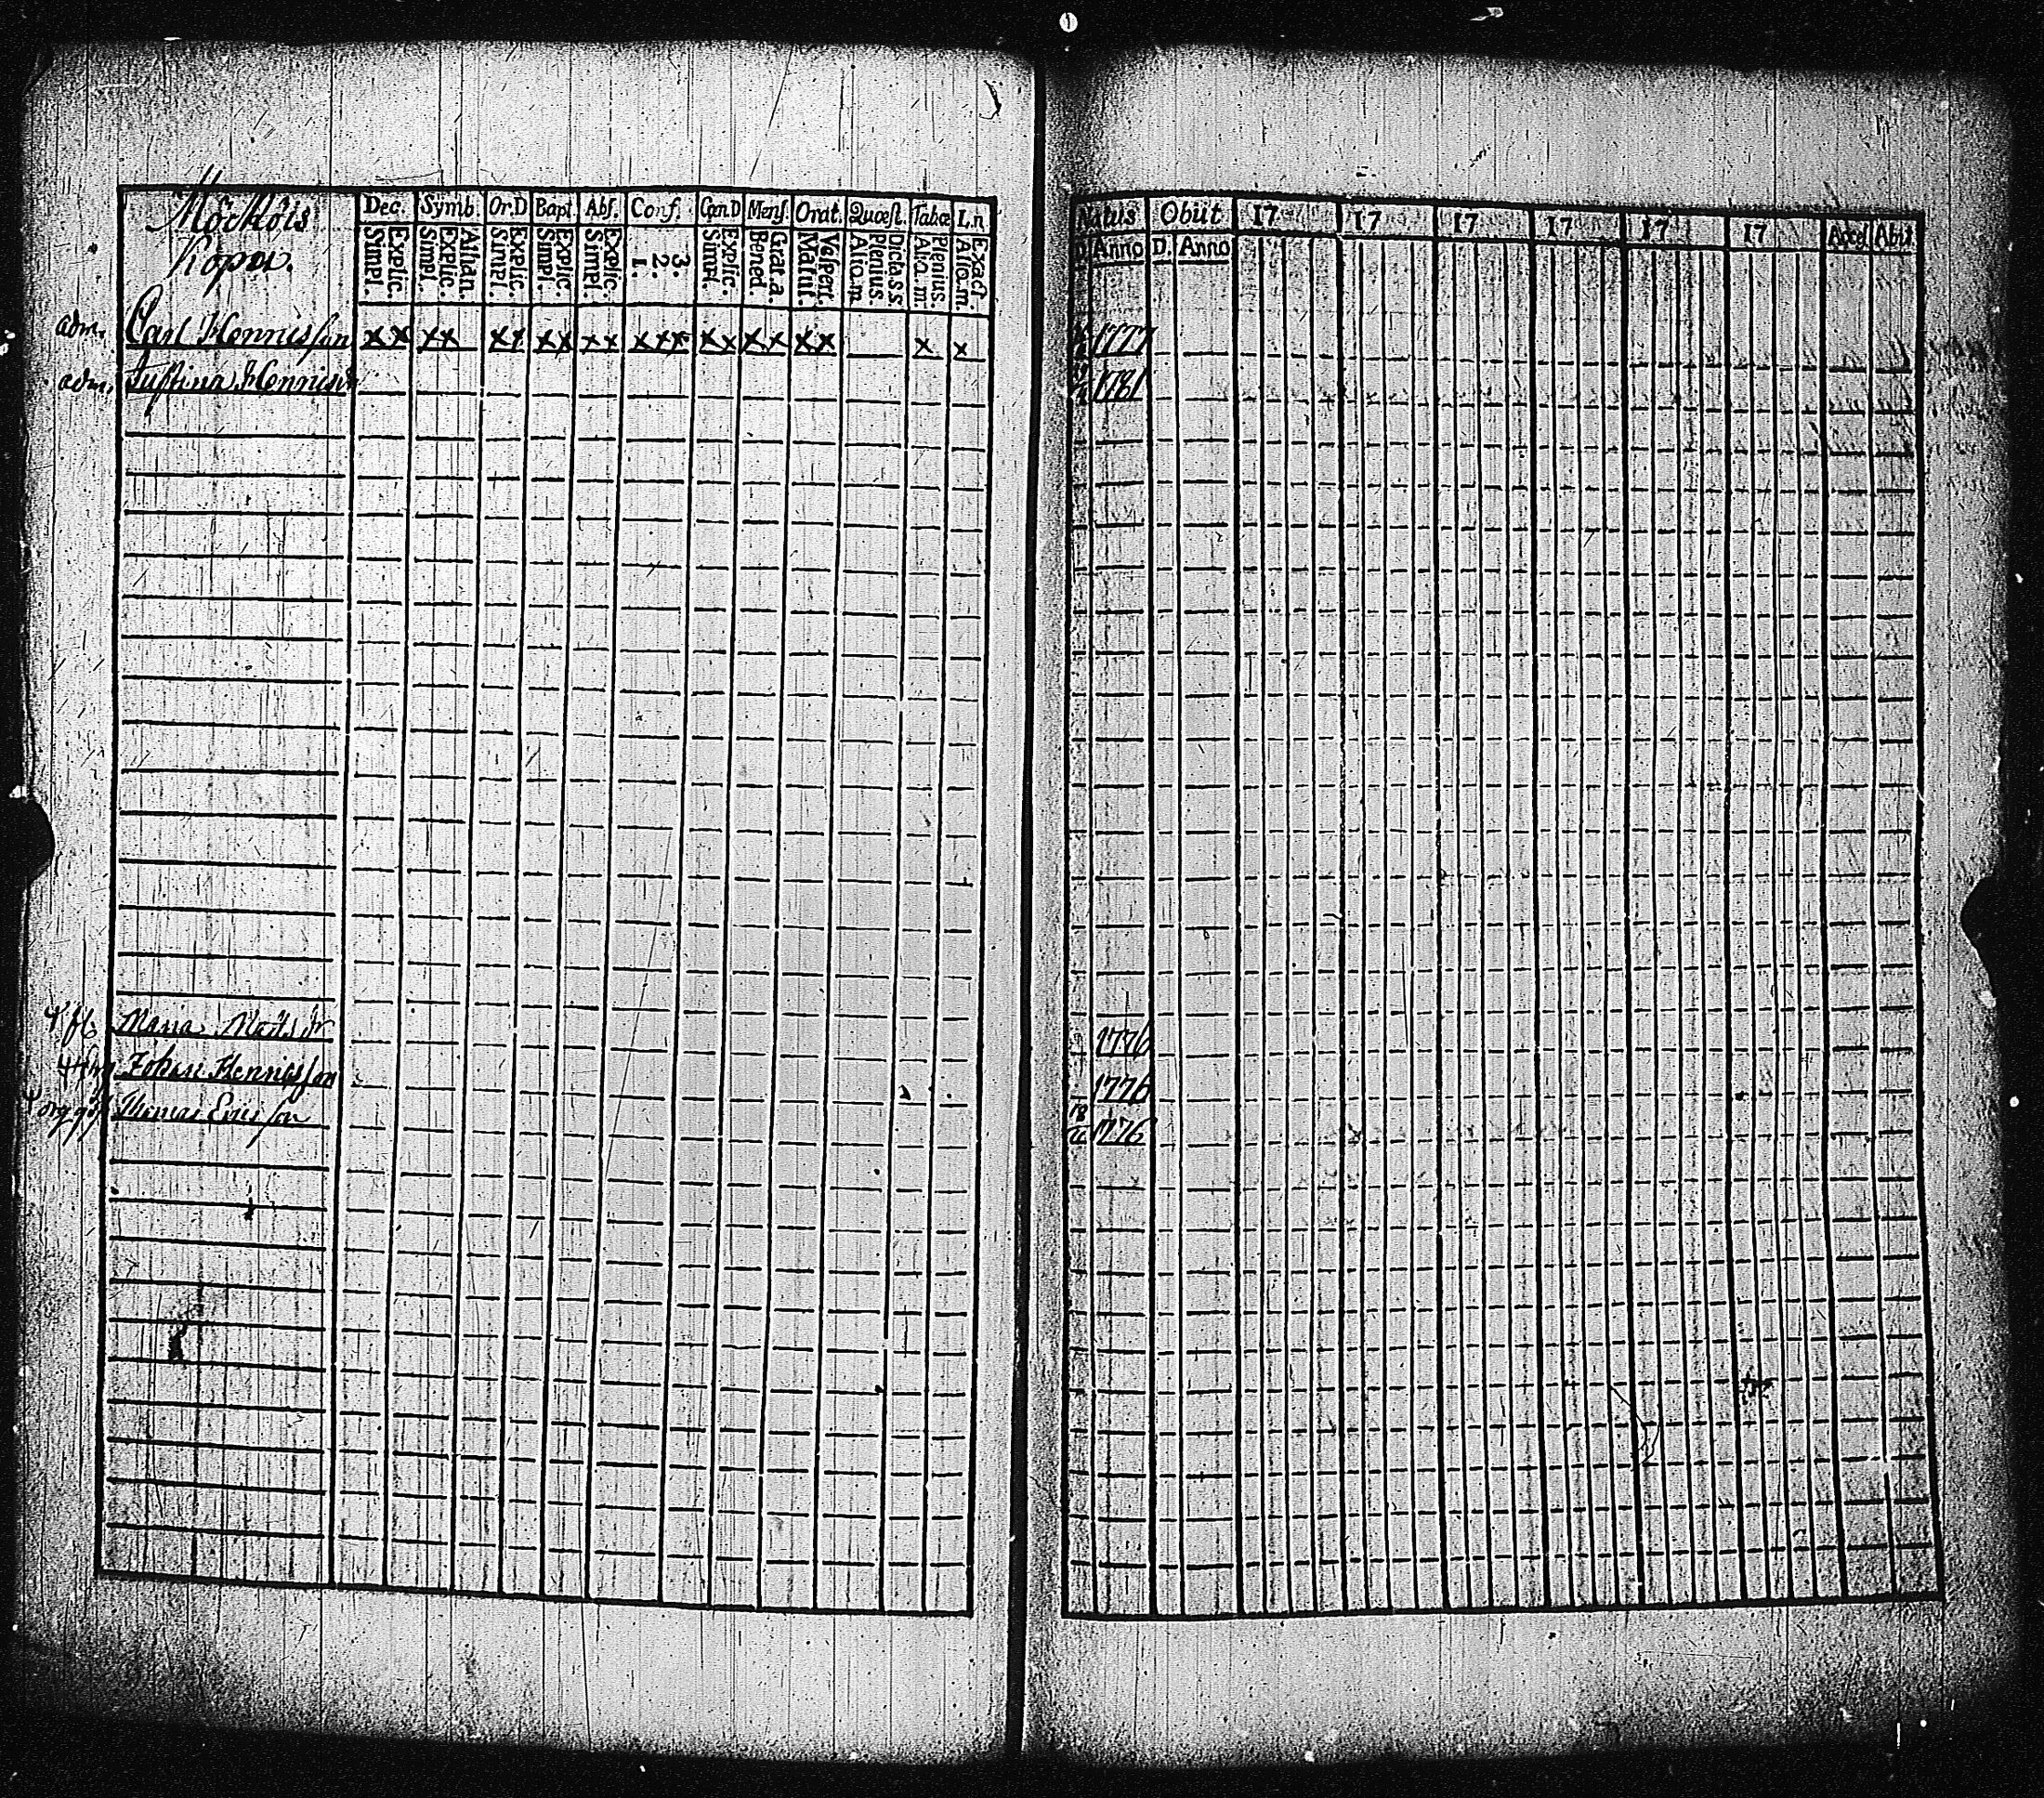 Möcköis
Kopox.
Dec. Symb. Or.D Bapt. Abs. Conf. Cœn.D Mens. Orat. Quæst. Tabæ L.n
Explic. Simpl. Athan. Explic. Simpl. Explic. Simpl. Explic. Simpl. Explic. Simpl. 3. 2. 1. Explic. Simpl. Grat.a. Bened. Vespert. Matut. Dictas.s Plenius. Aliq.m. Plenius. Aliq.m. Exact. Aliq.m.
adm. Carl Hennicsson x x x x x x x x x x x x x x x x x x x x x
adm. Justina Hennicsdr
Maria Matsdr
Johan Hennicsson
Thomas Ericsson
Natus Obiit 17 17 17 17 17 17 Acces. Abit.
D. Anno D. Anno
1777
1781
1776
1776
18 1776